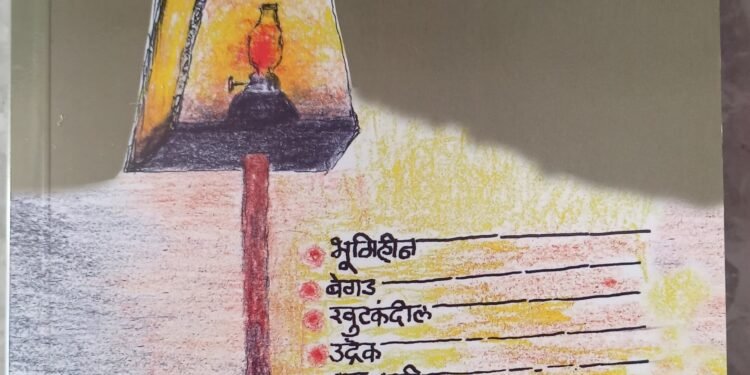 भूमिहीन
बेगड
खुटकंदील
उद्रेक